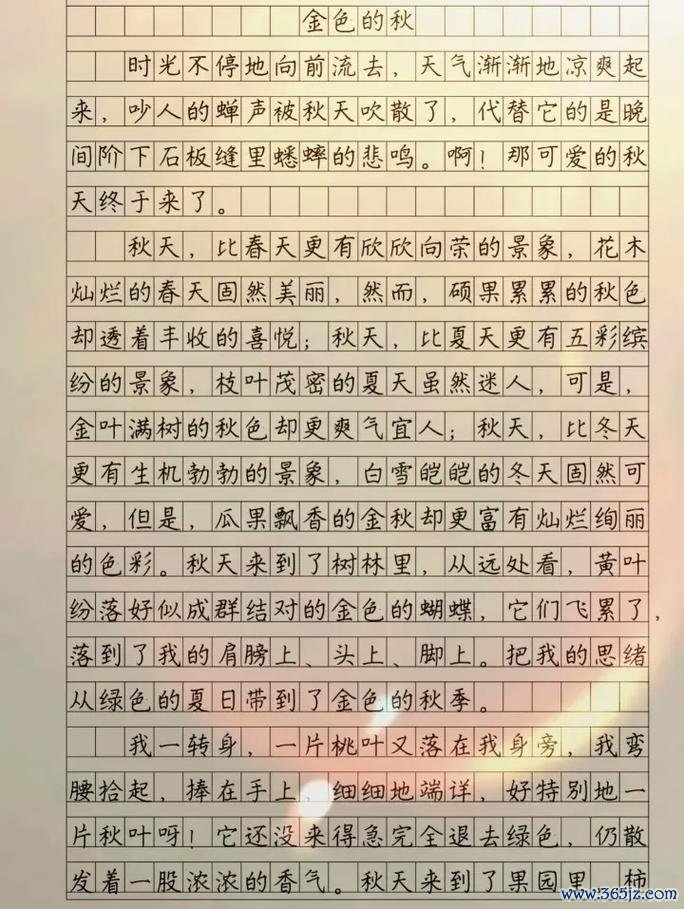 金色的秋
时光不停地向前流去，天气渐渐地凉爽起
来，吵人的蝉声被秋天吹散了，代替它的是晚
间阶下石板缝里蟋蟀的悲鸣。啊！那可爱的秋
天终于来了。
秋天，比春天更有欣欣向荣的景象，花木
灿烂的春天固然美丽，然而，硕果累累的秋色
却透着丰收的喜悦；秋天，比夏天更有五彩缤
纷的景象，枝叶茂密的夏天虽然迷人，可是，
金叶满树的秋色却更爽气宜人；秋天，比冬天
更有生机勃勃的景象，白雪皑皑的冬天固然可
爱，但是，瓜果飘香的金秋却更富有灿烂绚丽
的色彩。秋天来到了树林里，从远处看，黄叶
纷落好似成群结对的金色的蝴蝶，它们飞累了，
落到了我的肩膀上、头上、脚上。把我的思绪
从绿色的夏日带到了金色的秋季。
我一转身，一片桃叶又落在我身旁，我弯
腰拾起，捧在手上，细细地端详，好特别地一
片秋叶呀！它还没来得急完全退去绿色，仍散
发着一股浓浓的香气。秋天来到了果园里，柿
www.365jz.com